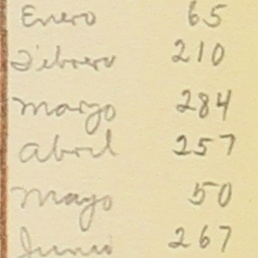 Enero 65
Febrero 210
Marzo 284
Abril 257
Mayo 50
Junio 267